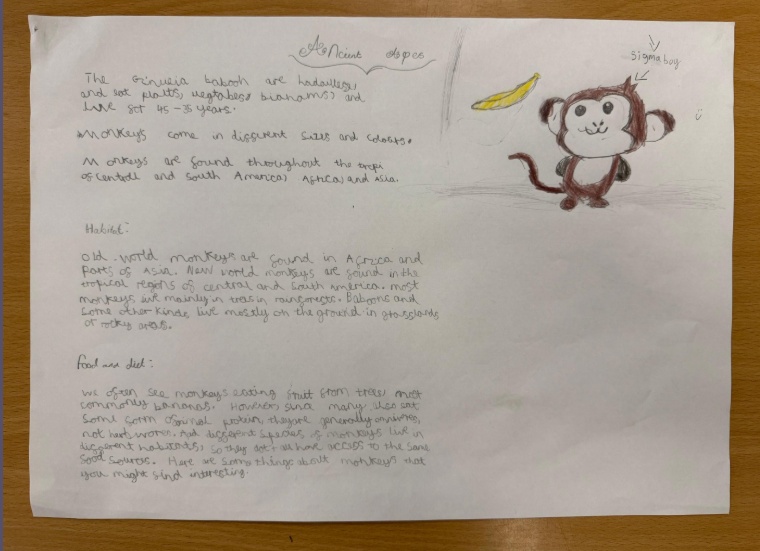 Ancient Apes
sigma boy
The Ginueia babooh are
and eat plants, vegtabes, and
live for 45-35 years.
Monkeys come in different sizes and colours.
Monkeys are found throughout the tropi
of central and South America, Africa, and Asia.
Habitat:
Old world monkeys are found in Africa and
Parts of Asia. New world monkeys are found in the
tropical regions of central and South America. most
monkeys live mainly in trees in rainforests. Baboons and
Some other kinds, live mostly on the ground in grasslands
or rocky areas.
Food
We often see monkeys eating fruit from trees, most
commonly bananas. However, since many also eat
Some form of protein, they're generally omnivores,
not And different species of monkeys live in
different habitats, so they don't all have access to the same
food sources. Here are some things about monkeys that
you might find interesting.